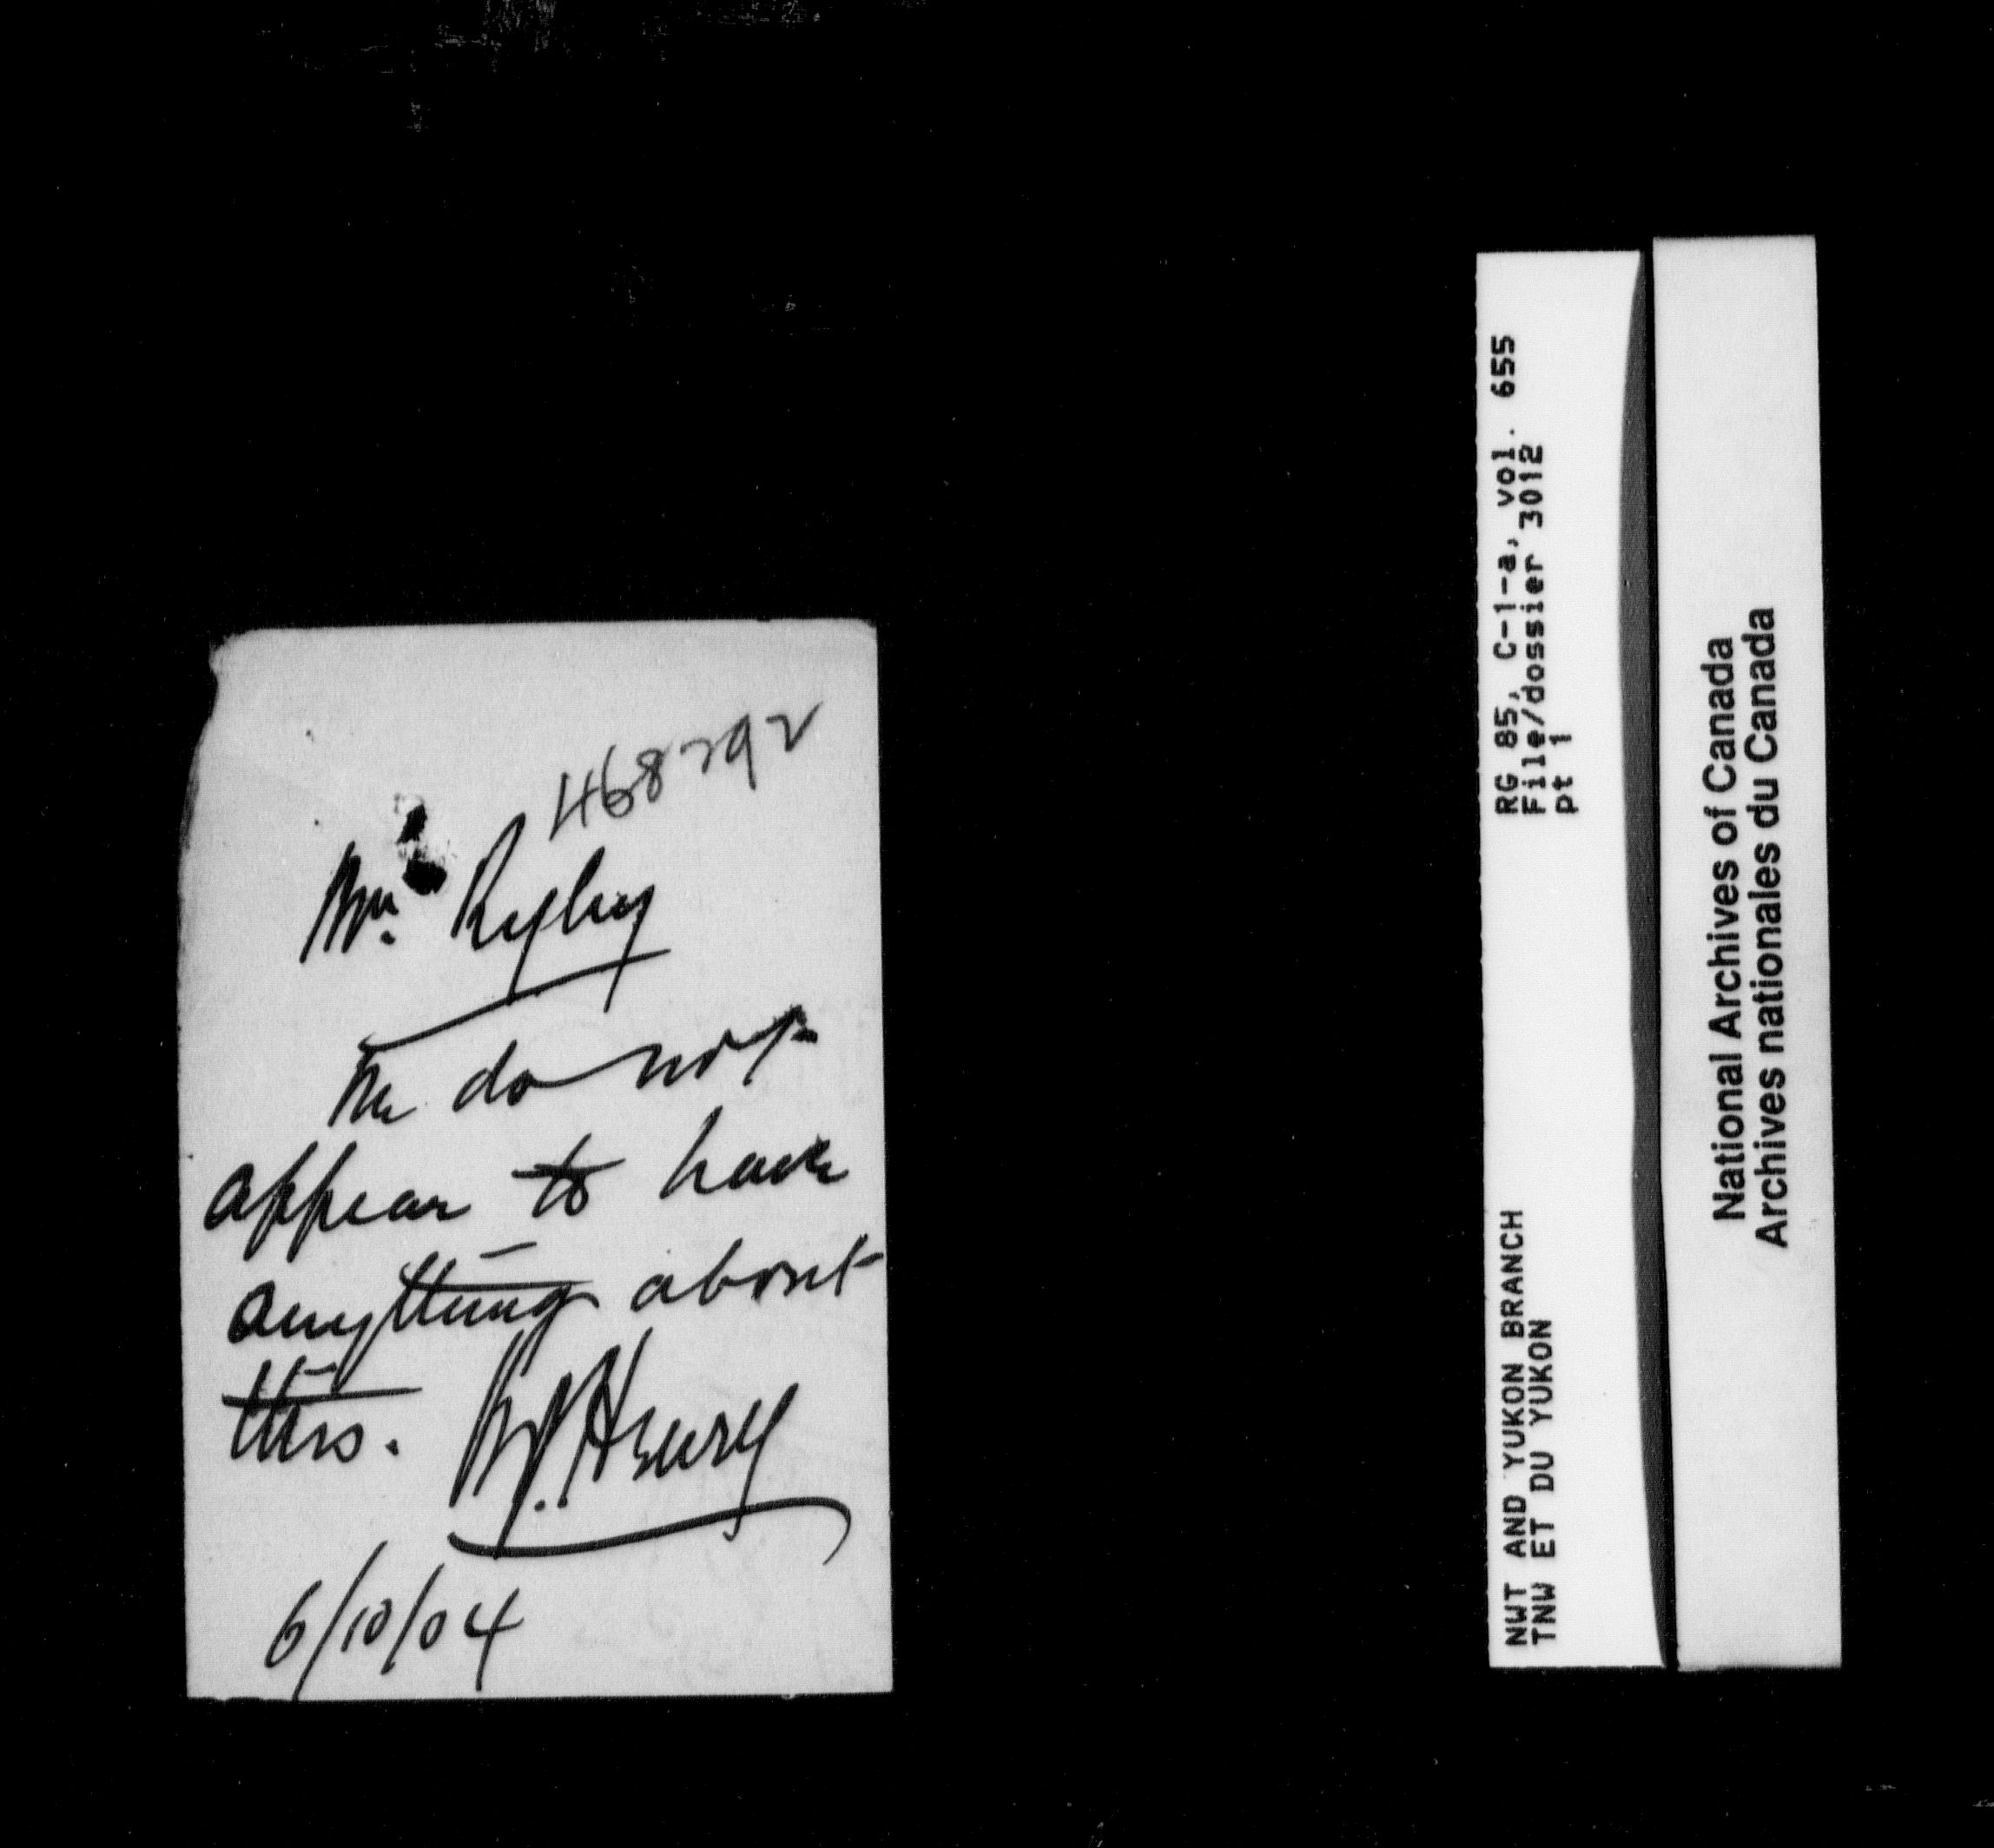 468292
Mr. Ryley
We do not
appear to have
anything about
this. Henry
6/10/04
RG 85, C-1-a, vol. 655
File/dossier 3012
pt 1
NWT AND YUKON BRANCH
TNW ET DU YUKON
National Archives of Canada
Archives nationales du Canada